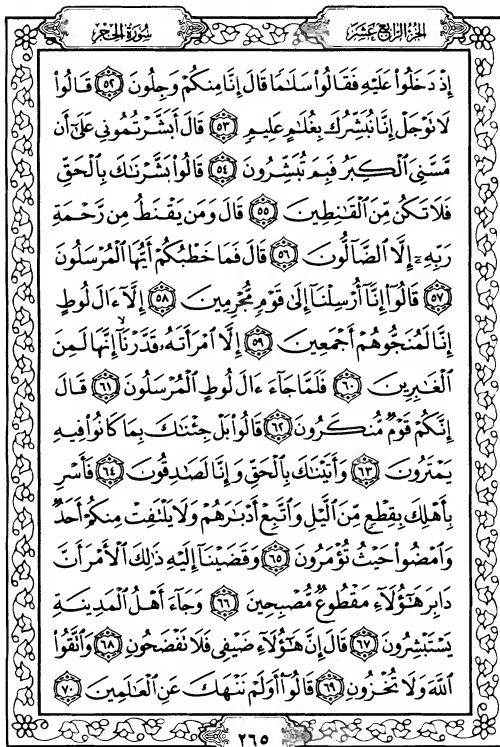 سُورَةُ الحِجْرِ
الجُزْءُ الرَّابِعَ عَشَرَ
إِذْ دَخَلُوا۟ عَلَيْهِ فَقَالُوا۟ سَلَـٰمًا قَالَ إِنَّا مِنكُمْ وَجِلُونَ ٥٢ قَالُوا۟
لَا تَوْجَلْ إِنَّا نُبَشِّرُكَ بِغُلَـٰمٍ عَلِيمٍ ٥٣ قَالَ أَبَشَّرْتُمُونِى عَلَىٰٓ أَن
مَّسَّنِىَ ٱلْكِبَرُ فَبِمَ تُبَشِّرُونَ ٥٤ قَالُوا۟ بَشَّرْنَـٰكَ بِٱلْحَقِّ
فَلَا تَكُن مِّنَ ٱلْقَـٰنِطِينَ ٥٥ قَالَ وَمَن يَقْنَطُ مِن رَّحْمَةِ
رَبِّهِۦٓ إِلَّا ٱلضَّآلُّونَ ٥٦ قَالَ فَمَا خَطْبُكُمْ أَيُّهَا ٱلْمُرْسَلُونَ
٥٧ قَالُوٓا۟ إِنَّآ أُرْسِلْنَآ إِلَىٰ قَوْمٍ مُّجْرِمِينَ ٥٨ إِلَّآ ءَالَ لُوطٍ
إِنَّا لَمُنَجُّوهُمْ أَجْمَعِينَ ٥٩ إِلَّا ٱمْرَأَتَهُۥ قَدَّرْنَآ إِنَّهَا لَمِنَ
ٱلْغَـٰبِرِينَ ٦٠ فَلَمَّا جَآءَ ءَالَ لُوطٍ ٱلْمُرْسَلُونَ ٦١ قَالَ
إِنَّكُمْ قَوْمٌ مُّنكَرُونَ ٦٢ قَالُوا۟ بَلْ جِئْنَـٰكَ بِمَا كَانُوا۟ فِيهِ
يَمْتَرُونَ ٦٣ وَأَتَيْنَـٰكَ بِٱلْحَقِّ وَإِنَّا لَصَـٰدِقُونَ ٦٤ فَأَسْرِ
بِأَهْلِكَ بِقِطْعٍ مِّنَ ٱلَّيْلِ وَٱتَّبِعْ أَدْبَـٰرَهُمْ وَلَا يَلْتَفِتْ مِنكُمْ أَحَدٌ
وَٱمْضُوا۟ حَيْثُ تُؤْمَرُونَ ٦٥ وَقَضَيْنَآ إِلَيْهِ ذَٰلِكَ ٱلْأَمْرَ أَنَّ
دَابِرَ هَـٰٓؤُلَآءِ مَقْطُوعٌ مُّصْبِحِينَ ٦٦ وَجَآءَ أَهْلُ ٱلْمَدِينَةِ
يَسْتَبْشِرُونَ ٦٧ قَالَ إِنَّ هَـٰٓؤُلَآءِ ضَيْفِى فَلَا تَفْضَحُونِ ٦٨ وَٱتَّقُوا۟
ٱللَّهَ وَلَا تُخْزُونِ ٦٩ قَالُوٓا۟ أَوَلَمْ نَنْهَكَ عَنِ ٱلْعَـٰلَمِينَ ٧٠
٢٦٥